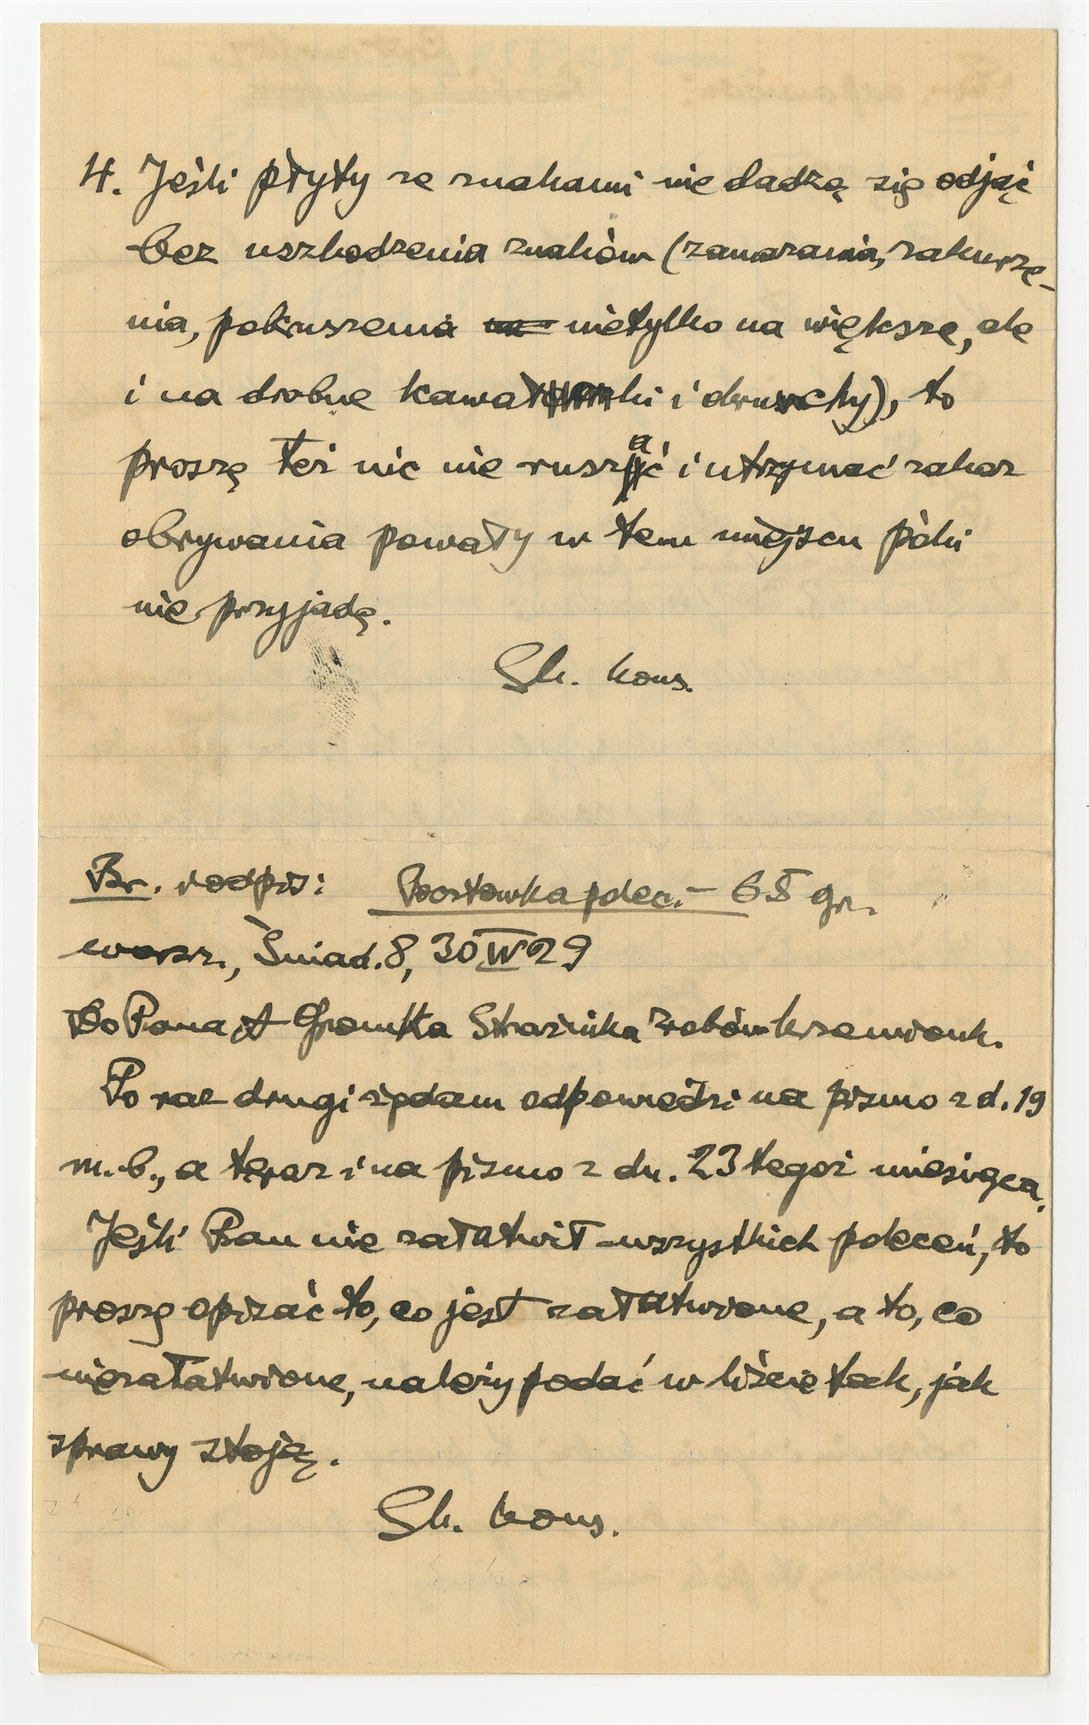 4. Jeśli płyty ze znakami nie dadzą się odjąć
bez uszkodzenia znaków (zamazania, zakurze-
nia, pokruszenia nietylko na większe, ale
i na drobne kawałki i okruchy), to
proszę też nic nie ruszać i utrzymać zakaz
obrywania powały w tem miejscu póki
nie przyjadę.
Gł. kons.
Br. odpis: Pocztówka polec. – 65 gr.
Warsz., Śniad. 8, 30 IV 29
Do Pana A Gromka Strażnika Zrobów krzemionk.
Po raz drugi żądam odpowiedzi na pismo z d. 19
m. b., a teraz i na pismo z dn. 23 tegoż miesiąca.
Jeśli Pan nie załatwił wszystkich poleceń, to
proszę opisać to, co jest załatwione, a to, co
niezałatwione, należy podać w liście tak, jak
sprawy stoją.
Gł. kons.